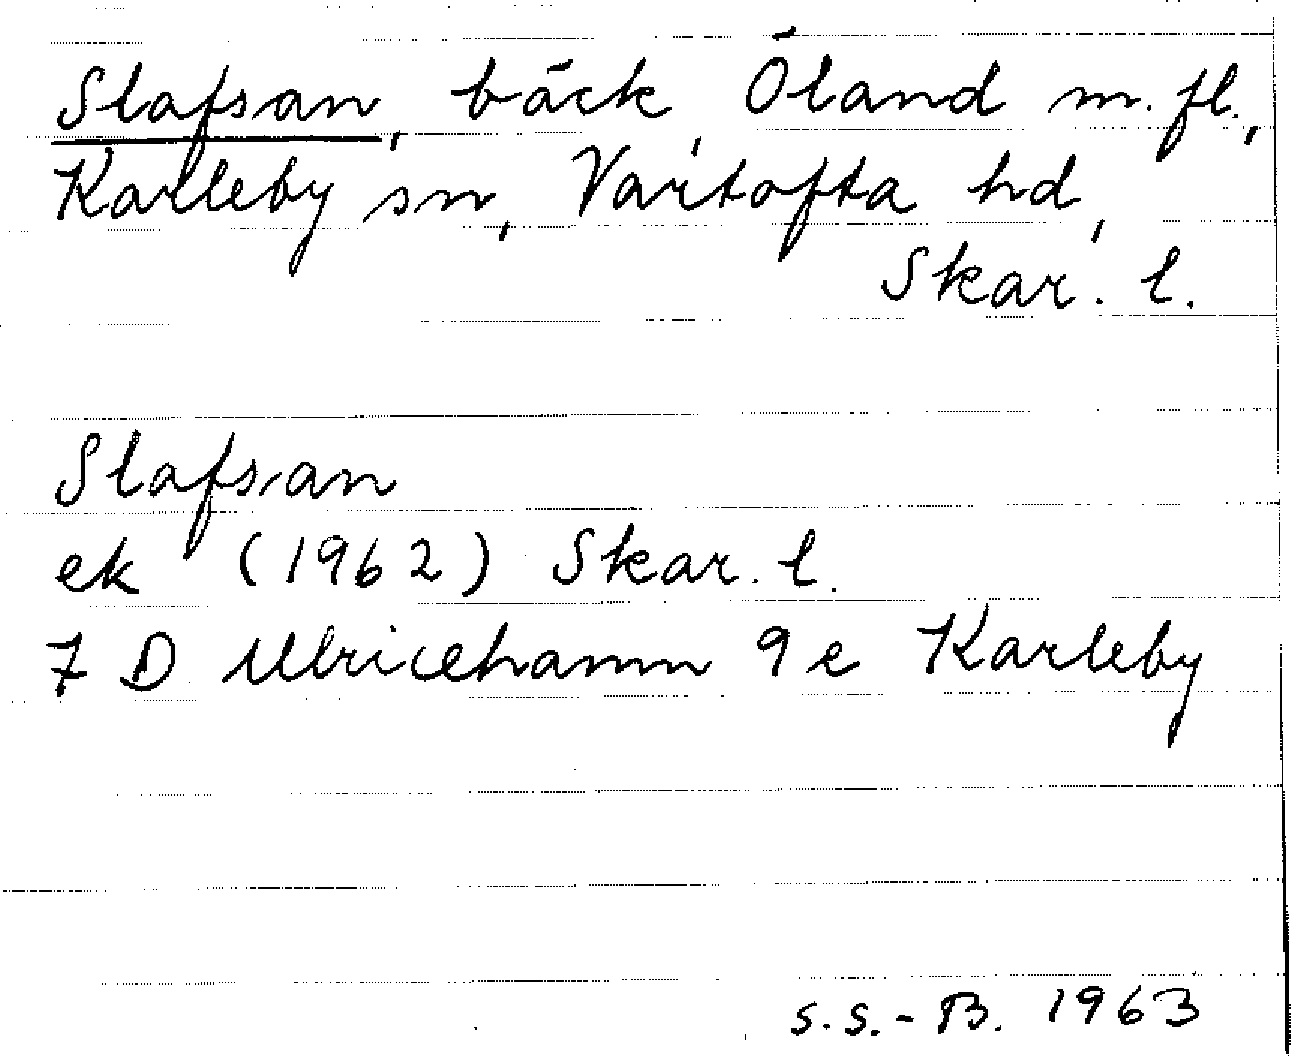 Slafsan, bäck, Öland m. fl.,
Karleby sn, Vartofta hd,
Skar. l.
Slafsan
ek (1962) Skar. l.
7 D Ulricehamn 9 e Karleby
S.S.-B. 1963